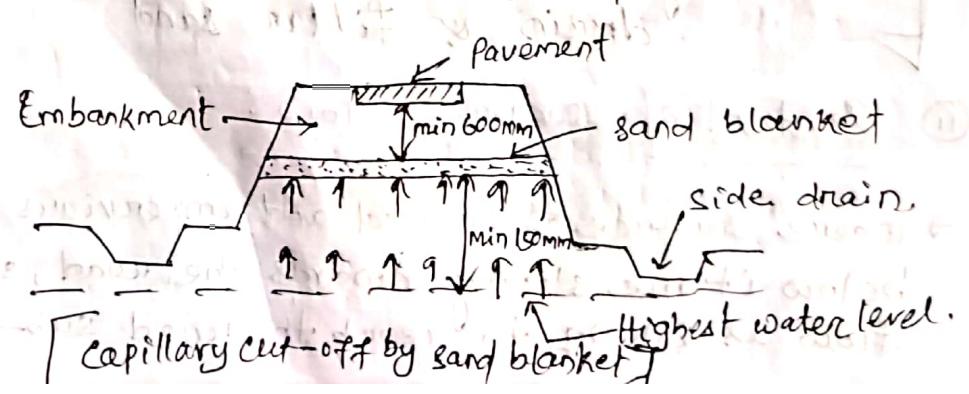 Pavement
Embankment
min 600mm
sand blanket
side drain.
Min 150mm
Highest water level.
Capillary cut-off by sand blanket